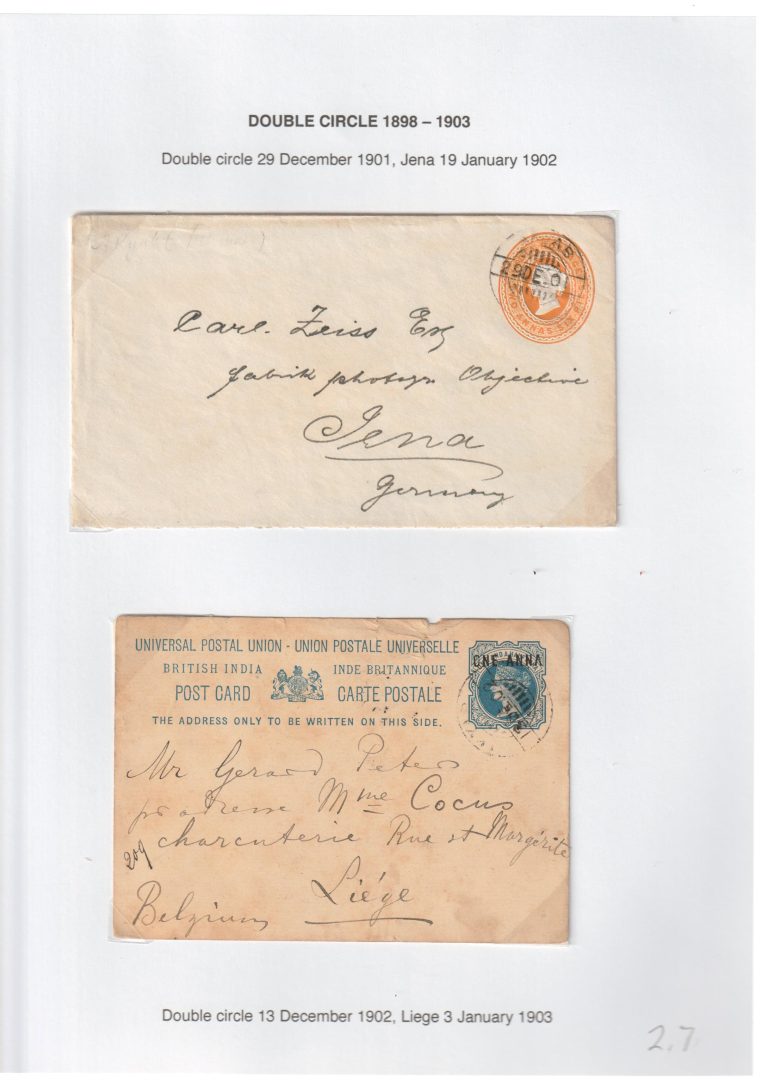 DOUBLE CIRCLE 1898 – 1903
Double circle 29 December 1901, Jena 19 January 1902
29 DE 0
Carl. Zeiss Esq
fabrik photogr Objective
Jena
Germany
UNIVERSAL POSTAL UNION - UNION POSTALE UNIVERSELLE
BRITISH INDIA INDE BRITANNIQUE
POST CARD CARTE POSTALE
THE ADDRESS ONLY TO BE WRITTEN ON THIS SIDE.
ONE ANNA
Mr Gerard Peters
pr adresse Mme Cocus
209 charcuterie Rue st Margérite
Liége
Belgium
Double circle 13 December 1902, Liege 3 January 1903
2.7